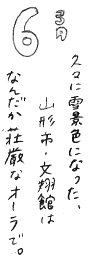 6
久々に雪景色になった、
山形市・文翔館は
なんだか荘厳なオーラで。